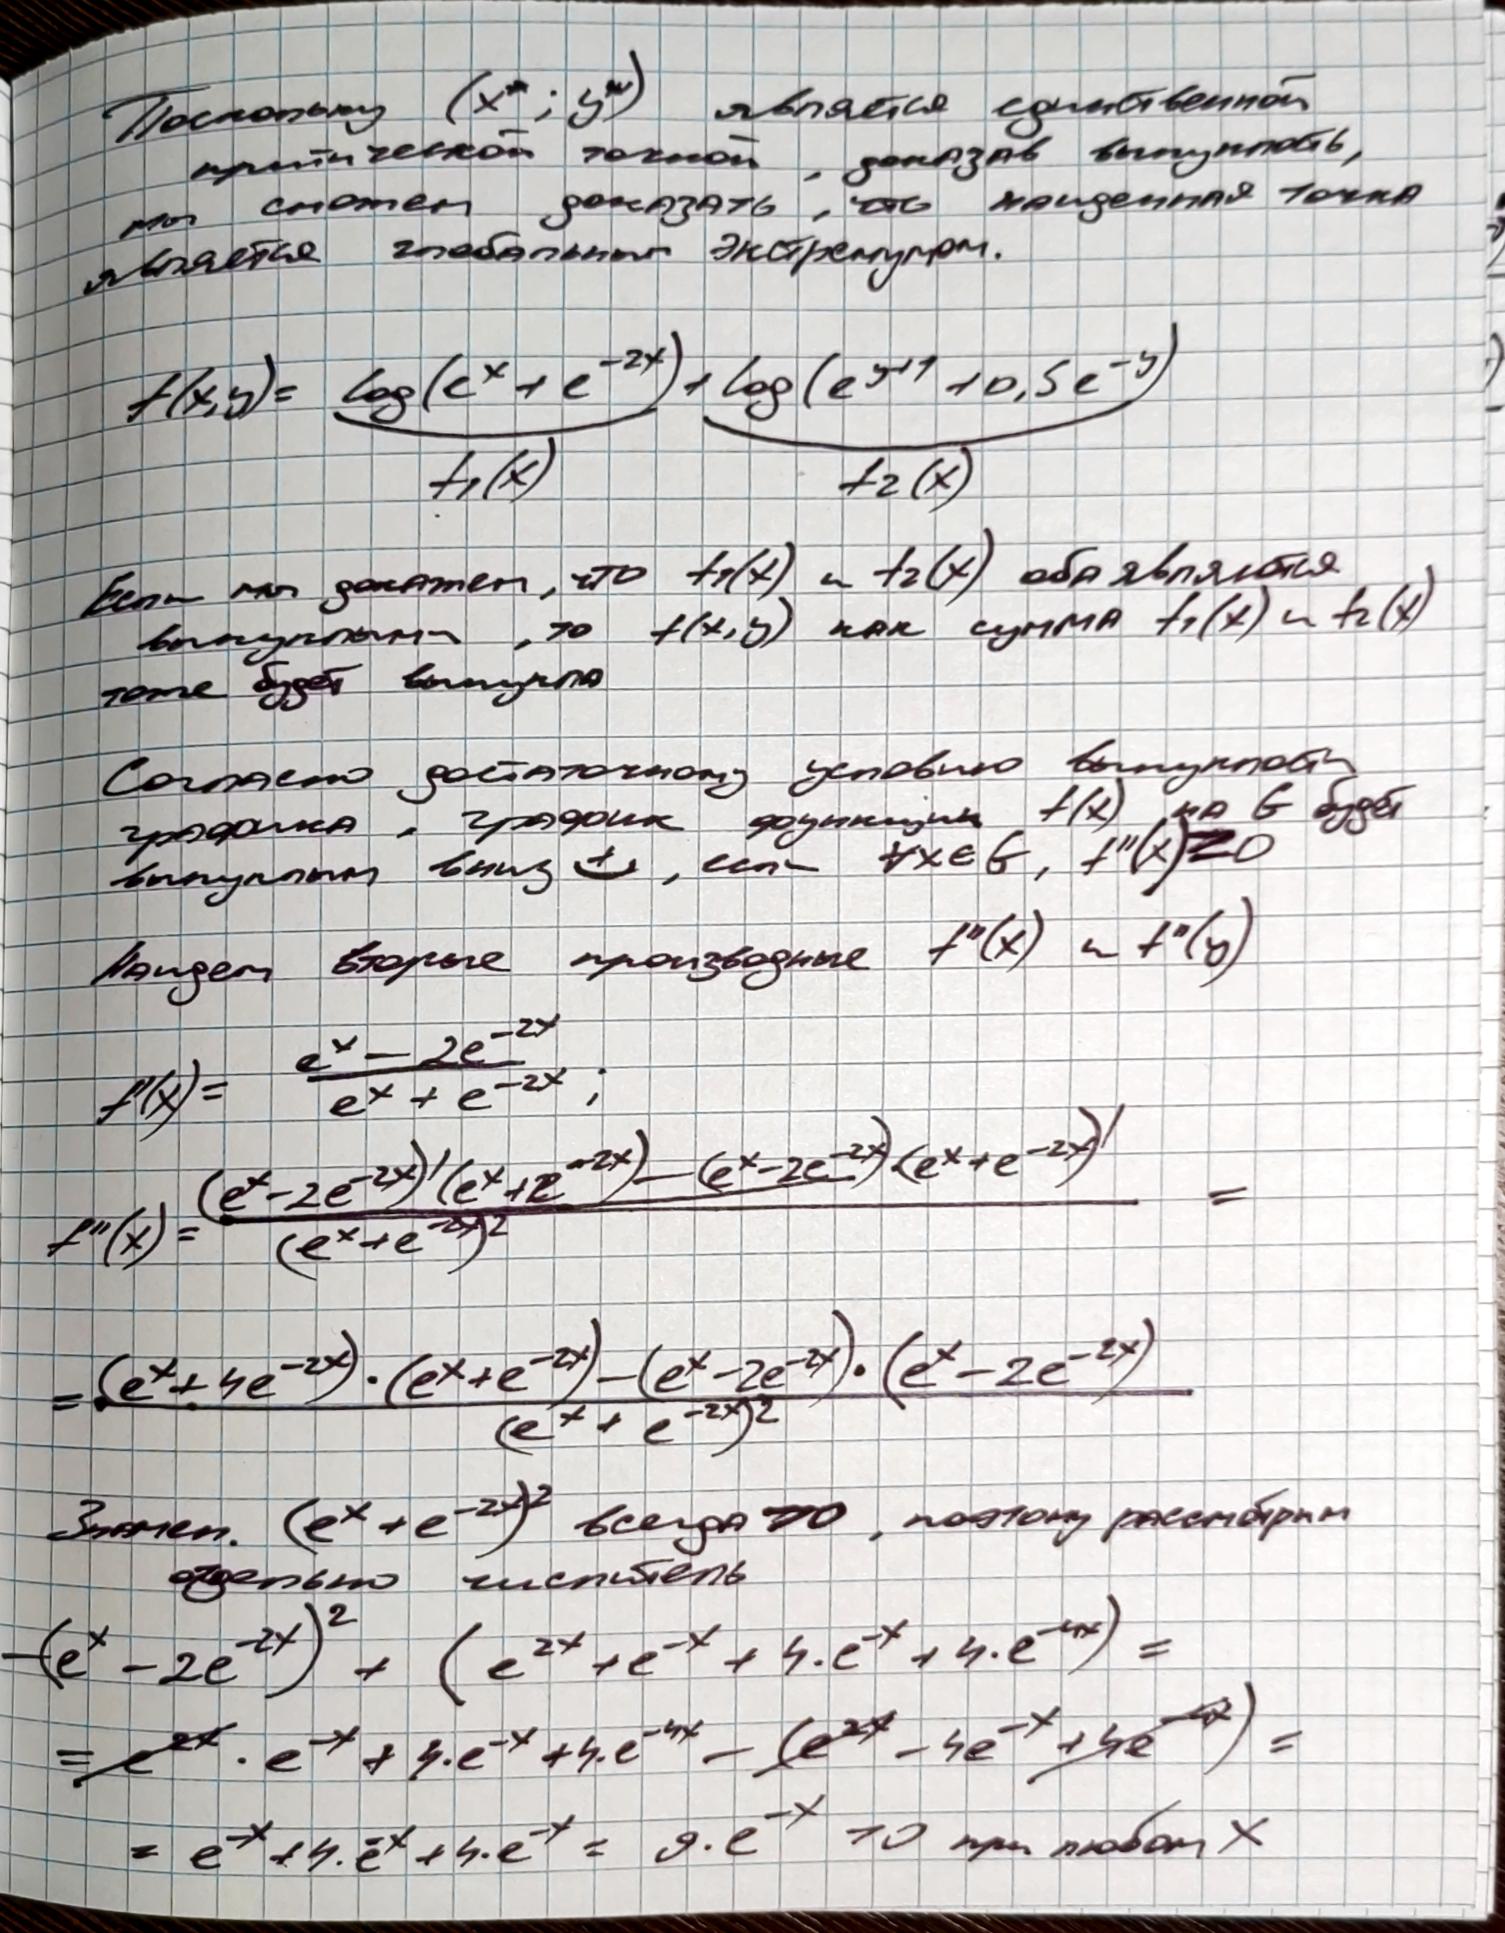 Поскольку (x*; y*) является единственной
критической точкой, доказав выпуклость,
мы сможем доказать, что найденная точка
является глобальным экстремумом.
f(x,y)= log(e^x + e^{-2x}) + log(e^{y+1} + 0,5e^{-y})
f₁(x) f₂(x)
Если мы докажем, что f₁(x) и f₂(x) оба являются
выпуклыми, то f(x,y) как сумма f₁(x) и f₂(x)
тоже будет выпукла
Согласно достаточному условию выпуклости
графика, график функции f(x) на G будет
выпуклым вниз +, если ∀x∈G, f''(x)≥0
Найдем вторые производные f''(x) и f''(y)
f'(x)= (e^x - 2e^{-2x}) / (e^x + e^{-2x});
f''(x)= ((e^x - 2e^{-2x})'(e^x + e^{-2x}) - (e^x - 2e^{-2x})·(e^x + e^{-2x})') / (e^x + e^{-2x})² =
= ((e^x + 4e^{-2x})·(e^x + e^{-2x}) - (e^x - 2e^{-2x})·(e^x - 2e^{-2x})) / (e^x + e^{-2x})²
Знамен. (e^x + e^{-2x})² всегда >0, поэтому рассмотрим
отдельно числитель
-(e^x - 2e^{-2x})² + (e^{2x} + e^{-x} + 4·e^{-x} + 4·e^{-4x}) =
= e^{2x} · e^{-x} + 4·e^{-x} + 4·e^{-4x} - (e^{2x} - 4e^{-x} + 4e^{-4x}) =
= e^{-x} + 4·e^{-x} + 4·e^{-x} = 9·e^{-x} >0 при любом x